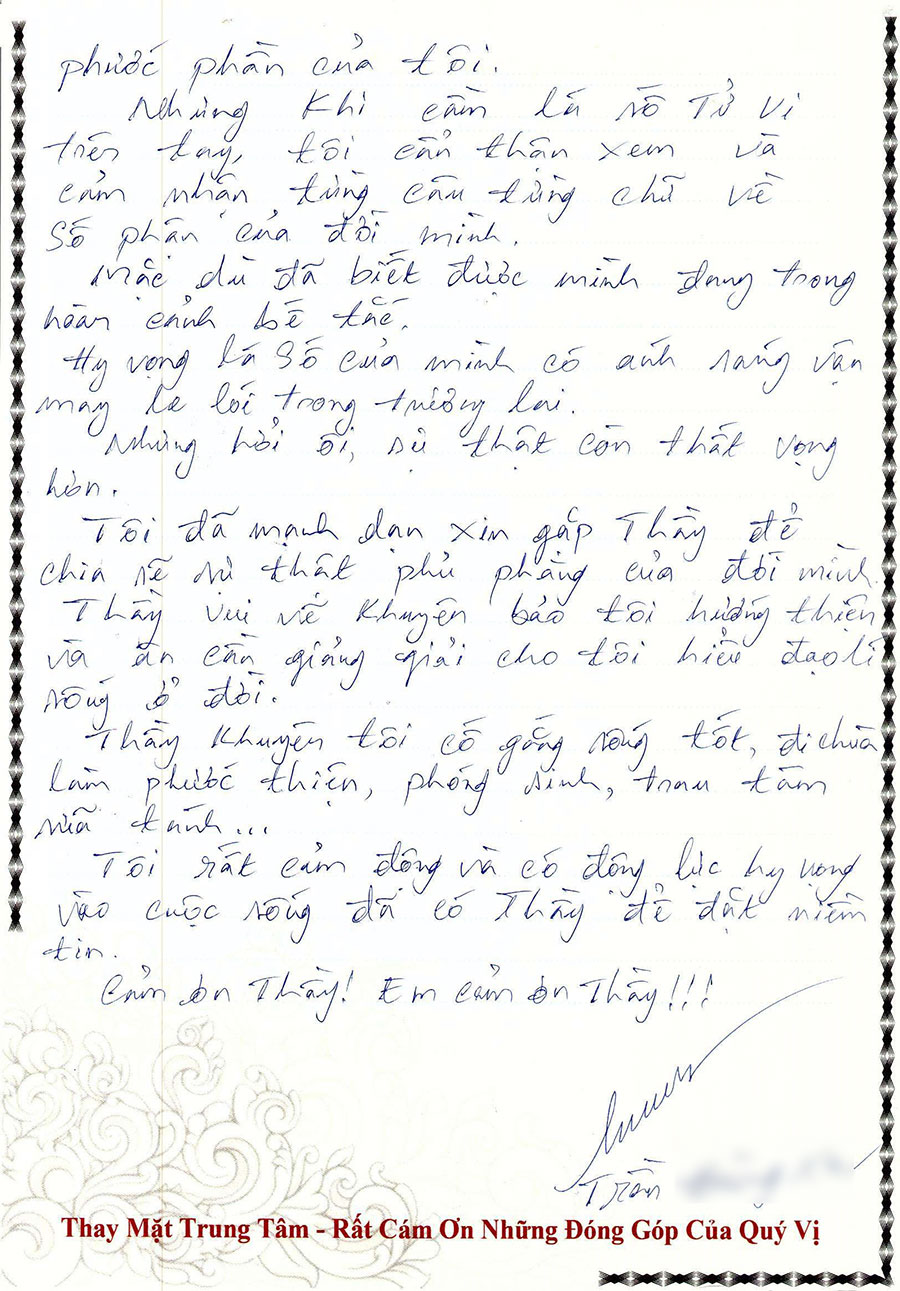 phước phần của tôi.
Nhưng khi cầm lá số Tử Vi
trên tay, tôi cẩn thận xem và
cảm nhận từng câu từng chữ về
số phận của đời mình.
Mặc dù đã biết được mình đang trong
hoàn cảnh bế tắc.
Hy vọng lá số của mình có ánh sáng vận
may le lói trong tương lai.
Nhưng hỡi ôi, sự thật còn thất vọng
hơn.
Tôi đã mạnh dạn xin gặp Thầy để
chia sẽ sự thật phủ phàng của đời mình.
Thầy vui vẽ khuyên bảo tôi hướng thiện
và ân cần giảng giải cho tôi hiểu đạo lí
sống ở đời.
Thầy khuyên tôi cố gắng sống tốt, đi chùa
làm phước thiện, phóng sinh, trau tâm
sữa tánh...
Tôi rất cảm động và có động lực hy vọng
vào cuộc sống đã có Thầy để đặt niềm
tin.
Cảm ơn Thầy! Em cảm ơn Thầy!!!
Trần
Thay Mặt Trung Tâm - Rất Cám Ơn Những Đóng Góp Của Quý Vị